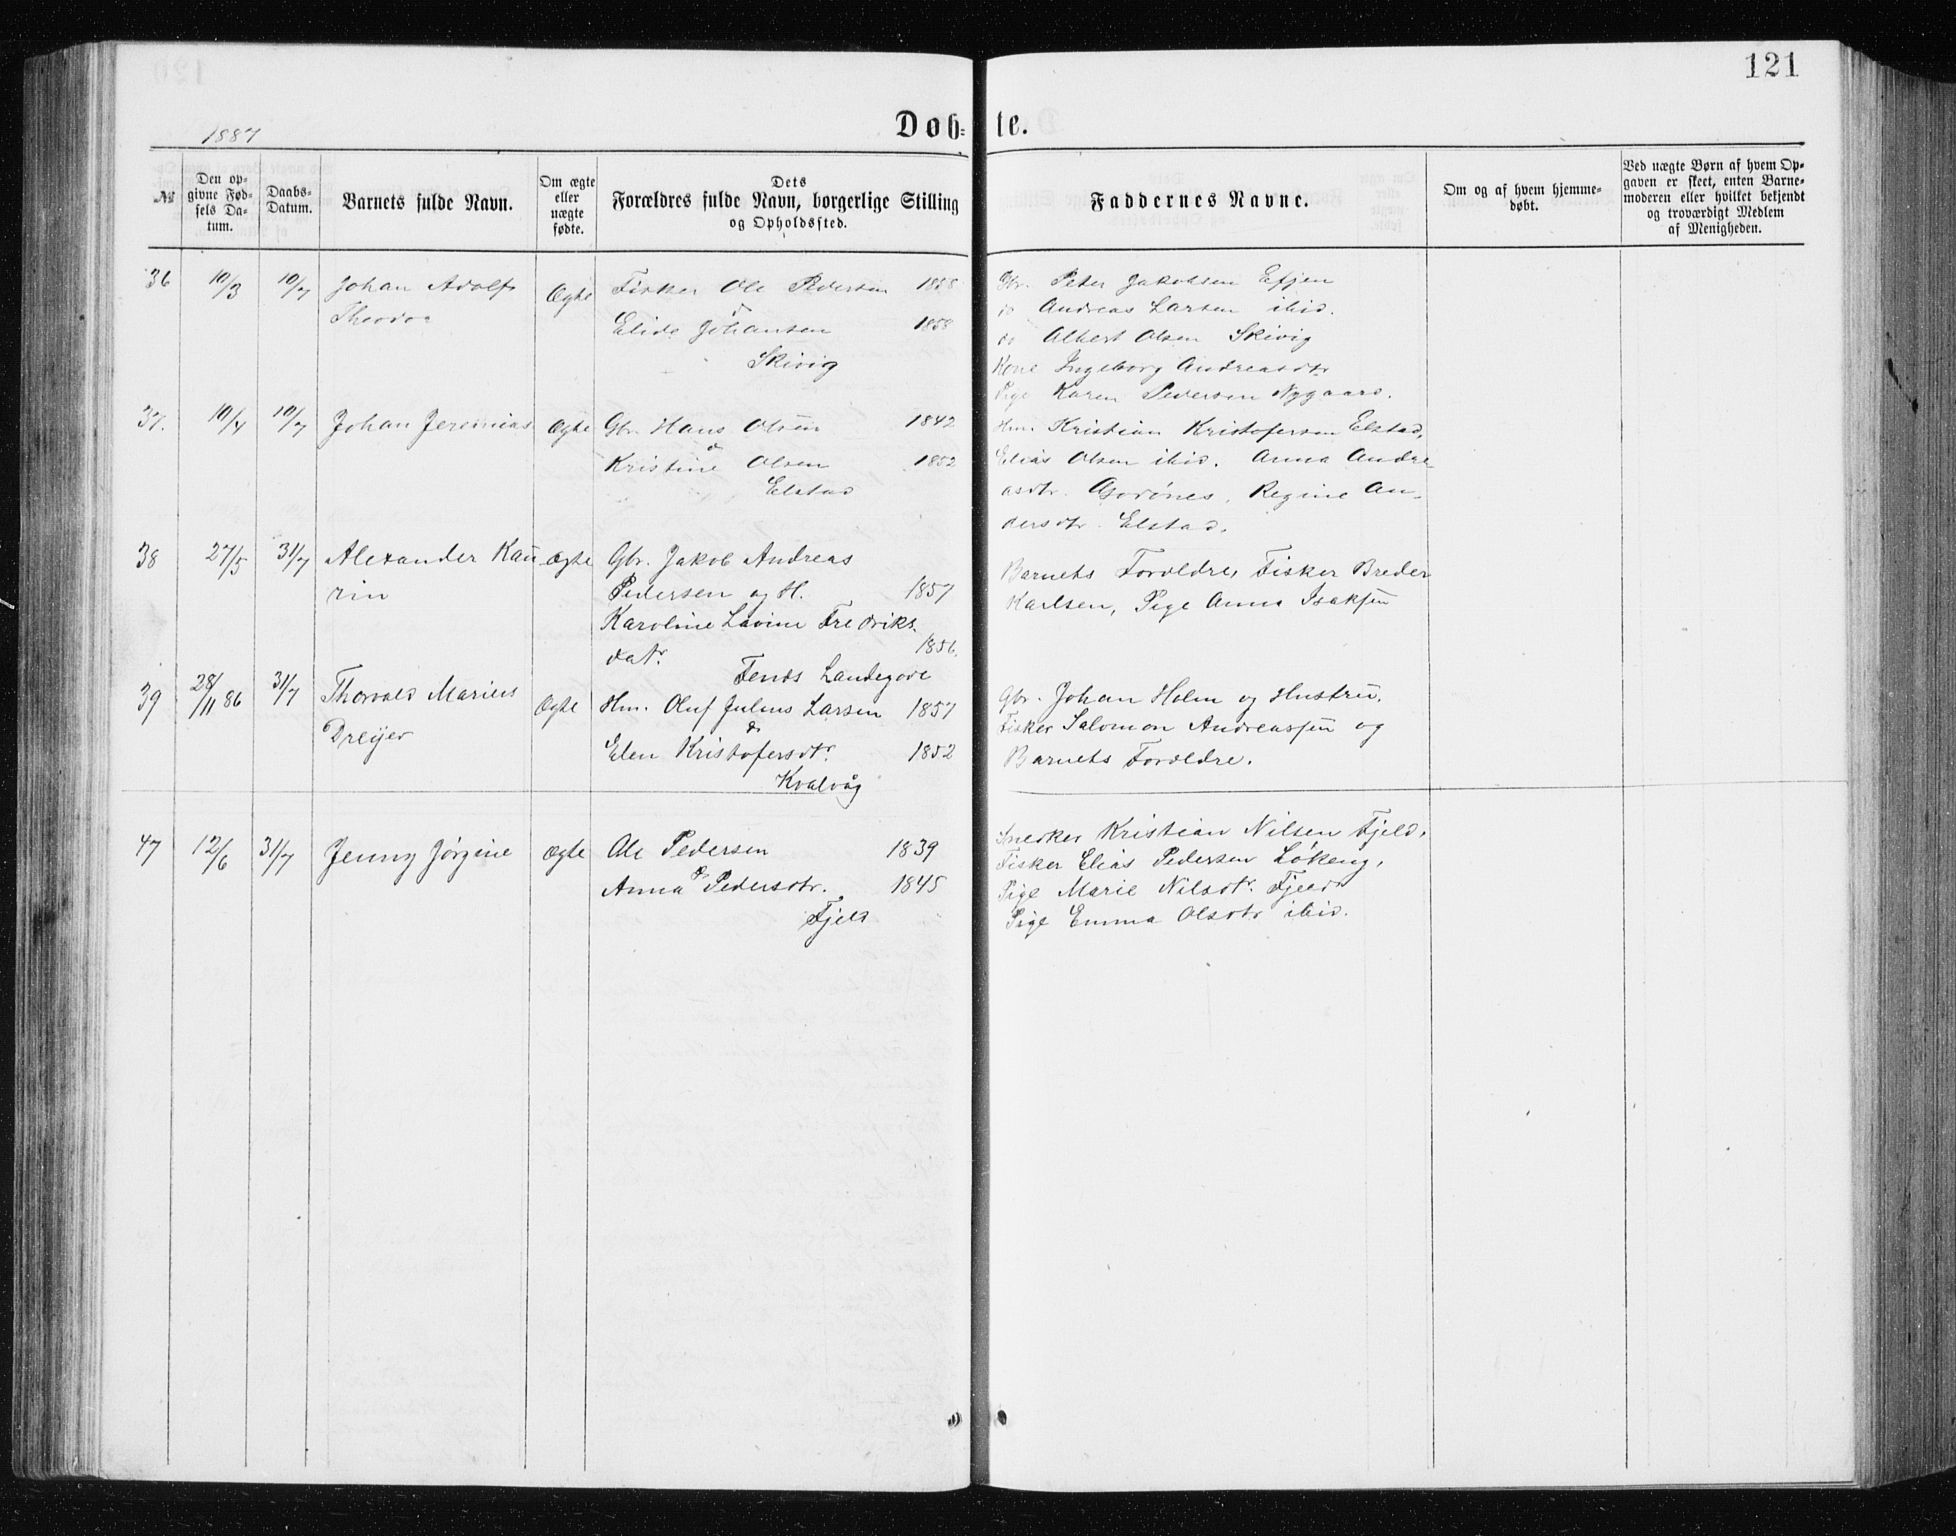 121
1887
Døb= te.
№
Den op-
givne Fød-
sels Da-
tum.
Daabs-
Datum.
Barnets fulde Navn.
Om ægte
eller
uægte
fødte.
Dets
Forældres fulde Navn, borgerlige Stilling
og Opholdssted.
Faddernes Navne.
Om og af hvem hjemme-
døbt.
Ved uægte Børn af hvem Op-
gaven er skeet, enten Barne-
moderen eller hvilket bekjendt
og troværdigt Medlem
af Menigheden.
36 10/3 10/7 Johan Adolf Ægte Fisker Ole Pedersen 1858
Theodor
Elide Johansen 1858
Skivig
Gbr. Peter Jakobsen Efjen
do Andreas Larsen ibid.
do Albert Olsen Skivig
Kone Ingeborg Andreasdtr
Pige Karen Pedersen Nygaard.
37. 10/4 10/7 Johan Jeremias Ægte Gbr. Hans Olsen 1842
&
Kristine Olsen 1852
Elstad
Hm. Kristian Kristofersen Elstad,
Elias Olsen ibid. Anna Andre-
asdtr. Regine An-
dersdtr. Elstad.
38 27/5 31/7 Alexander Kau Ægte Gbr. Jakob Andreas
rin
Pedersen og H. 1857
Karoline Lavine Fredriks-
datr. 1856.
Fends Landegode
Barnets Forældre, Fisker Breder
Karlsen, Pige Anna Isaksen
39 28/11 86 31/7 Thorvald Marius Ægte Hm. Oluf Julius Larsen 1857
Dreyer
&
Elen Kristofersdtr. 1852
Kvalvåg
Gbr. Johan Holm og Hustru.
Fisker Salomon Andreassen og
Barnets Forældre.
47 12/6 31/7 Jenny Jørgine Ægte Ole Pedersen 1839
&
Anna Pedersdtr. 1845
Fjeld
Snedker Kristian Nilsen Fjeld.
Fisker Elias Pedersen Løkeng.
Pige Marie Nilsdtr. Fjeld
Pige Emma Olsdtr ibid.